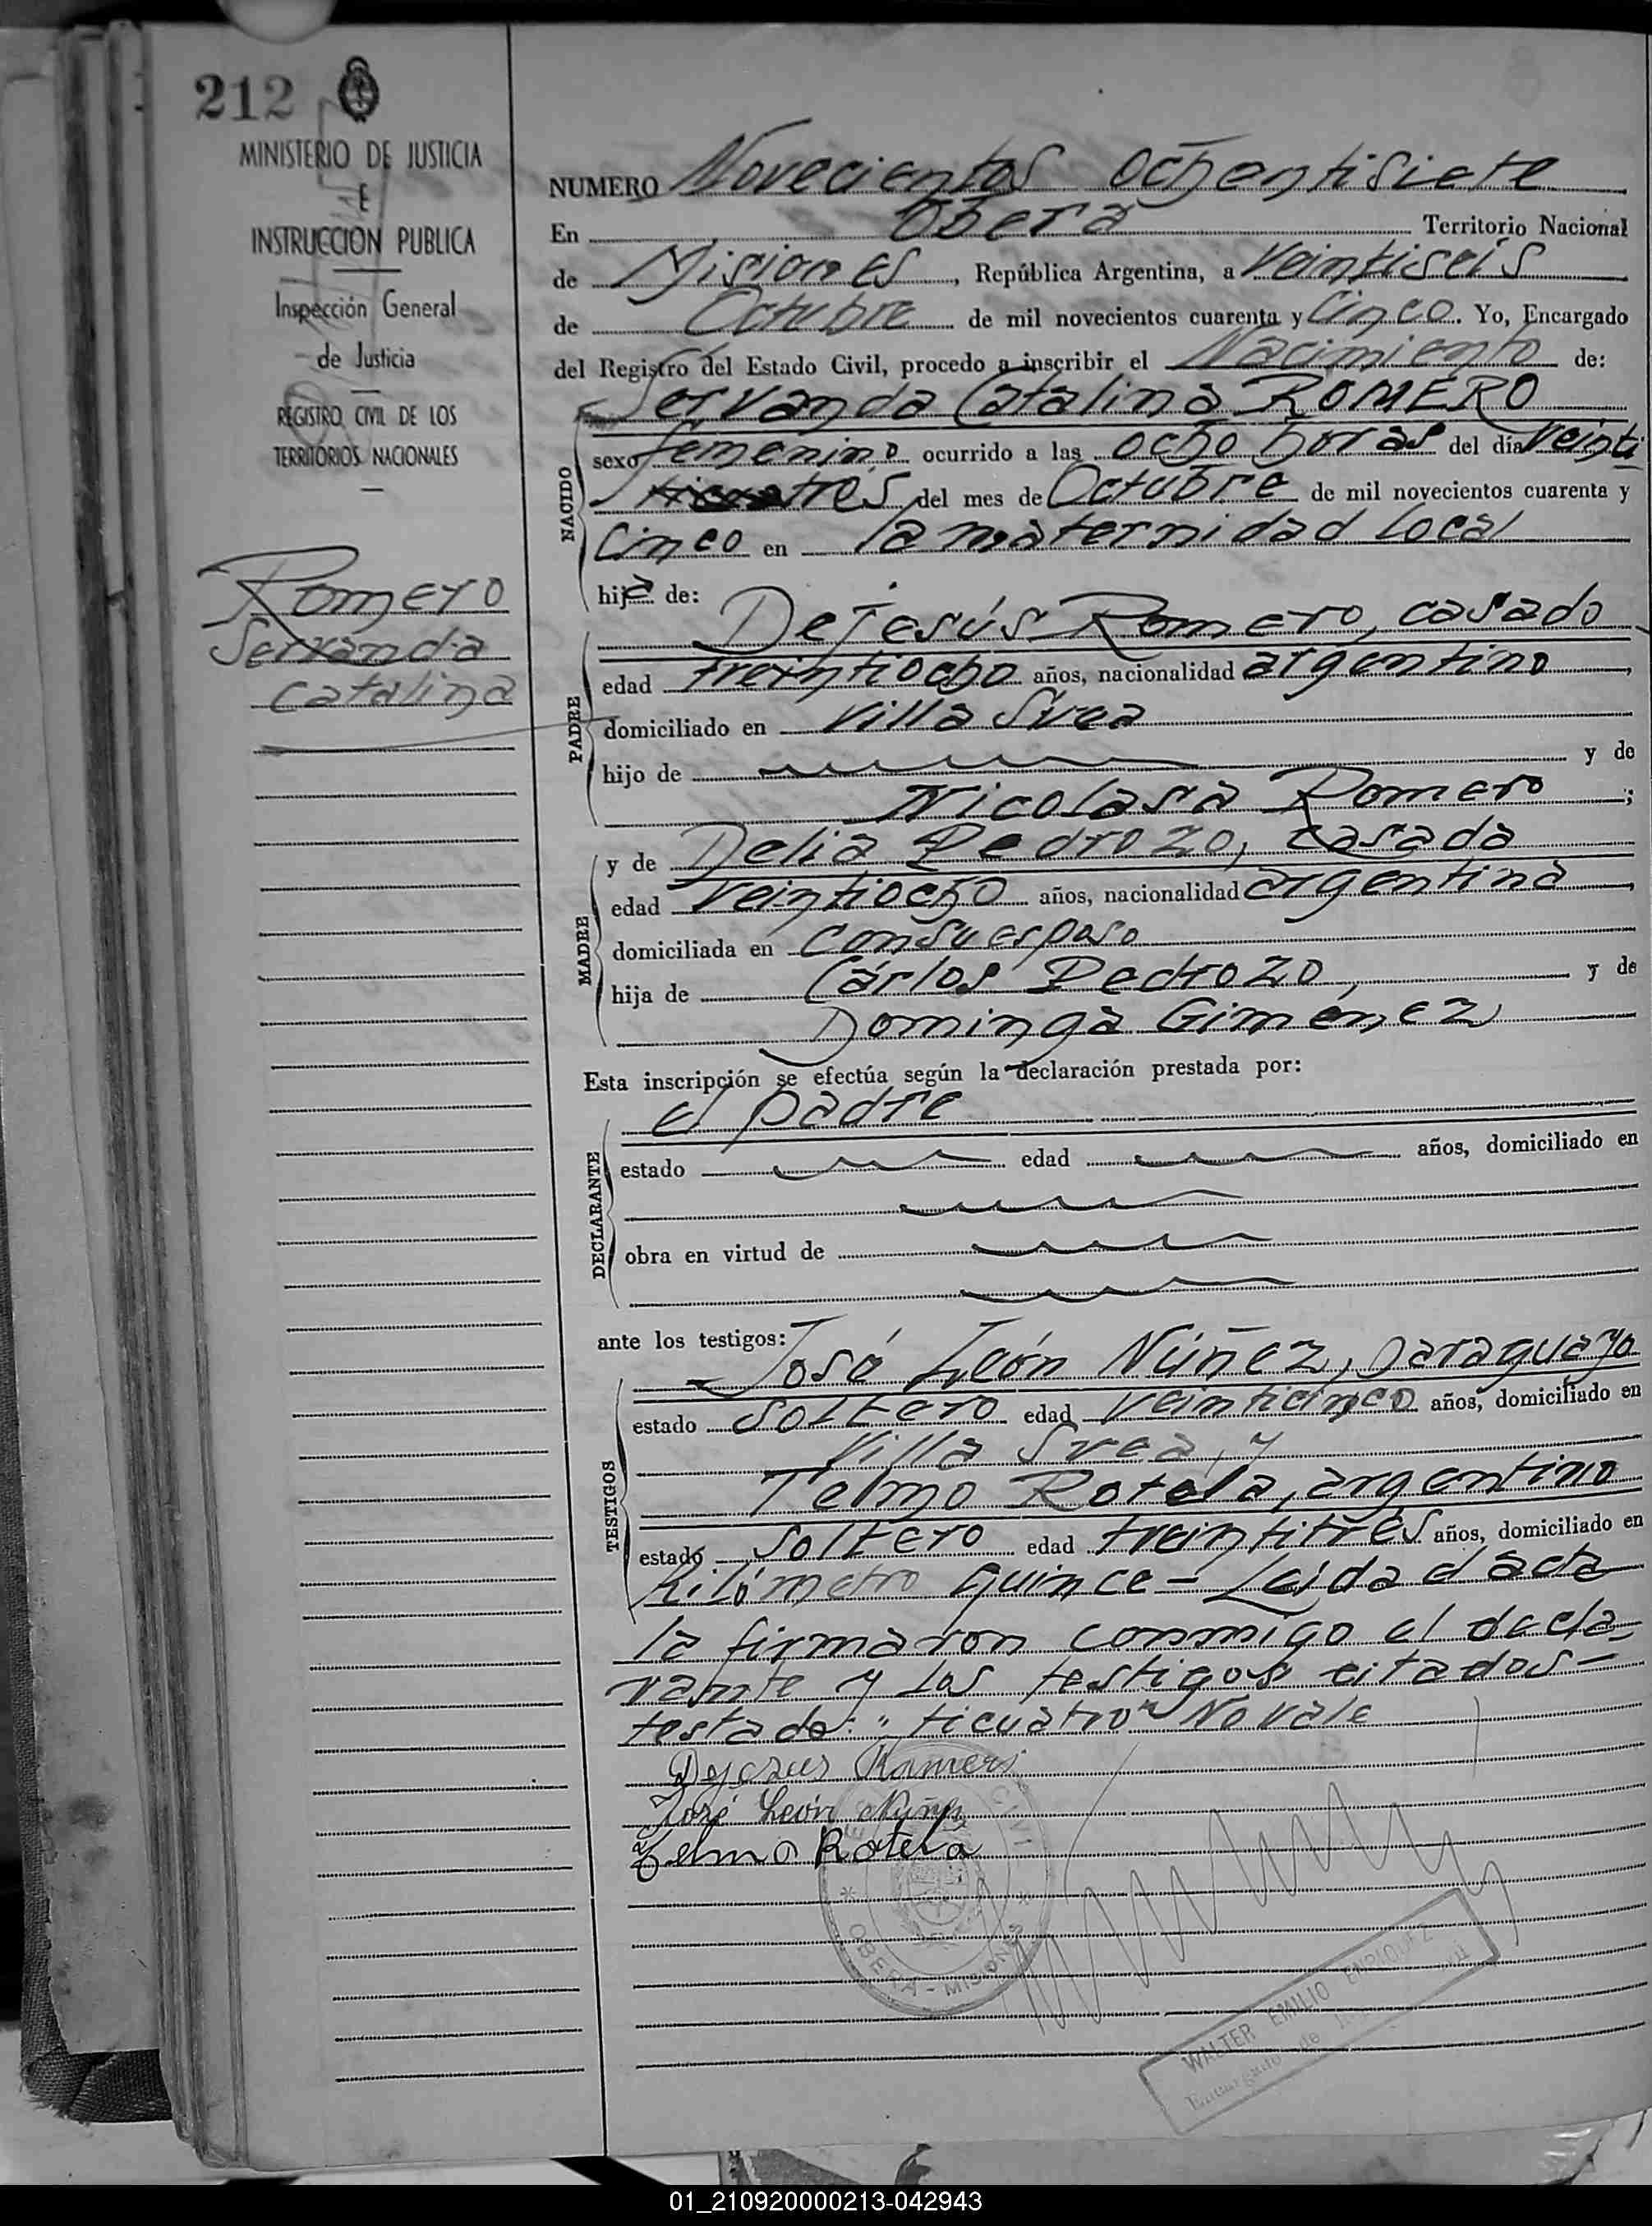 212
MINISTERIO DE JUSTICIA
E
INSTRUCCIÓN PUBLICA
Inspección General
de Justicia
REGISTRO CIVIL DE LOS
TERRITORIOS NACIONALES
Romero
Servanda
Catalina
NUMERO Novecientos ochentisiete
En Oberá Territorio Nacional
de Misiones, República Argentina, a veintiseis
de Octubre de mil novecientos cuarenta y Cinco. Yo, Encargado
del Registro del Estado Civil, procedo a inscribir el Nacimiento de:
Servanda Catalina ROMERO
NACIDO
sexo femenino ocurrido a las ocho horas del día veinti
tres del mes de Octubre de mil novecientos cuarenta y
Cinco en la maternidad local
hija de:
PADRE
De Jesús Romero, casado
edad treintiocho años, nacionalidad argentino,
domiciliado en Villa Svea
hijo de y de
Nicolasa Romero;
MADRE
y de Delia Pedrozo, casada
edad veintiocho años, nacionalidad argentina,
domiciliada en con su esposo
hija de Cárlos Pedrozo, y de
Dominga Giménez
Esta inscripción se efectúa según la declaración prestada por:
DECLARANTE
el padre
estado edad años, domiciliado en
obra en virtud de
ante los testigos:
TESTIGOS
José León Núñez, paraguayo
estado soltero edad veinticinco años, domiciliado en
Villa Svea, y
Telmo Rotela, argentino
estado soltero edad treintitrés años, domiciliado en
Kilómetro quince - Leida el acta
la firmaron conmigo el decla-
rante y los testigos citados -
testado: "ticuatro" No vale
Dejesus Romero
José León Núñez
Telmo Rotela
CIVI
OBERA - MISIONES
WALTER EMILIO ENRIQUEZ
Encargado de
01_210920000213-042943